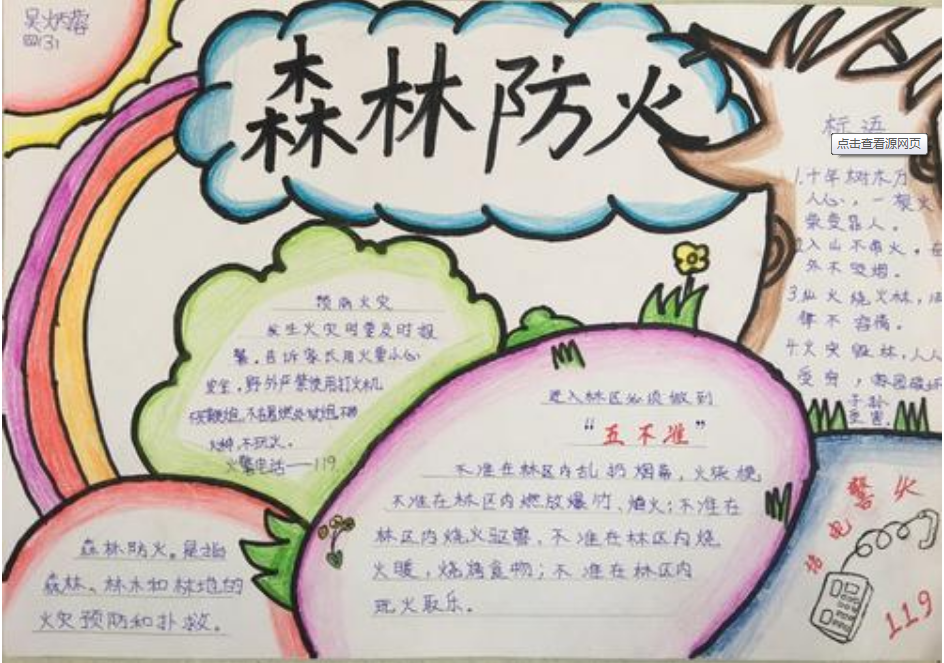 四(3)
森林防火
标语
点击查看源网页
1.十年树木万
人心,一把火
荣变黑人。
2入山不带火,在
外不吸烟。
3纵火烧火林,法
律不容情。
4火灾毁林,人人
受穷,
子孙
受害.
预防火灾
发生火灾时要及时报
警.告诉家长用火要小心
安全,野外严禁使用打火机
火种,不玩火.
火警电话——119
进入林区必须做到
“五不准”
不准在林区内乱扔烟蒂,火柴梗
不准在林区内燃放爆竹,焰火;不准在
林区内烧火驱兽,不准在林区内烧
火暖,烧烤食物;不准在林区内
玩火取乐.
森林防火。是指
森林、林木和林地的
火灾预防和扑救.
火警电话
119